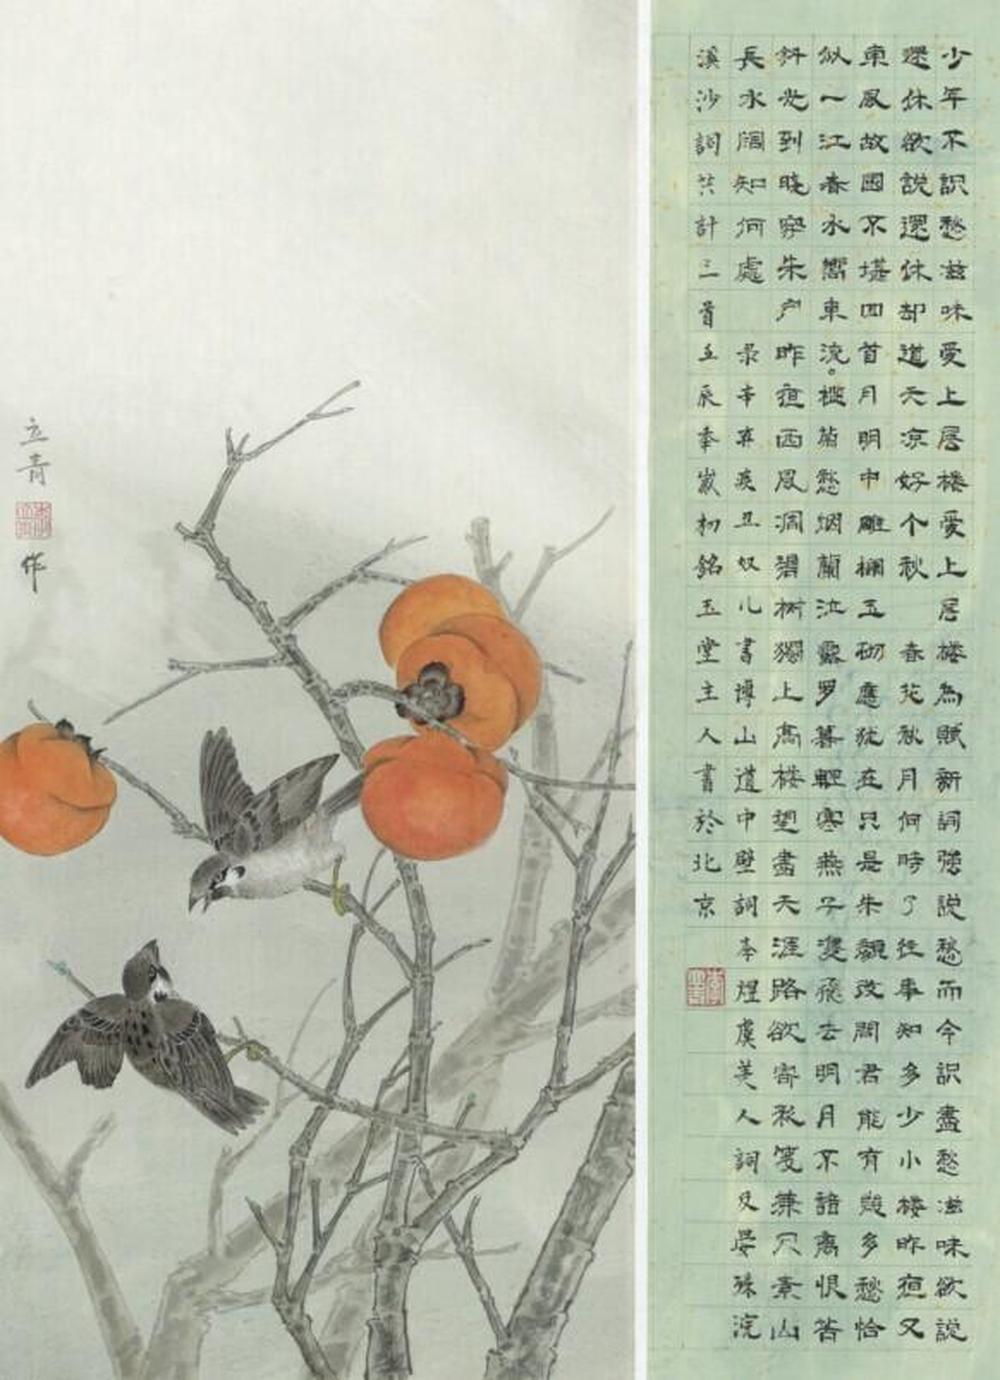 少年不識愁滋味愛上层楼愛上层楼為賦新詞強說愁而今識盡愁滋味欲說
還休欲說還休却道天凉好个秋 春花秋月何時了往事知多少小楼昨夜又
東風故國不堪回首月明中雕欄玉砌應猶在只是朱顏改問君能有幾多愁恰
似一江春水嚮東流。槛菊愁烟蘭泣露罗幕輕寒燕子雙飛去明月不諳离恨苦
斜光到曉穿朱户昨夜西風凋碧树獨上高楼望盡天涯路欲寄彩箋兼尺素山
長水阔知何處 录辛弃疾丑奴儿書博山道中壁詞李煜虞美人詞及晏殊浣
溪沙詞共計三首壬辰秊歲初銘玉堂主人書於北京
立青
作